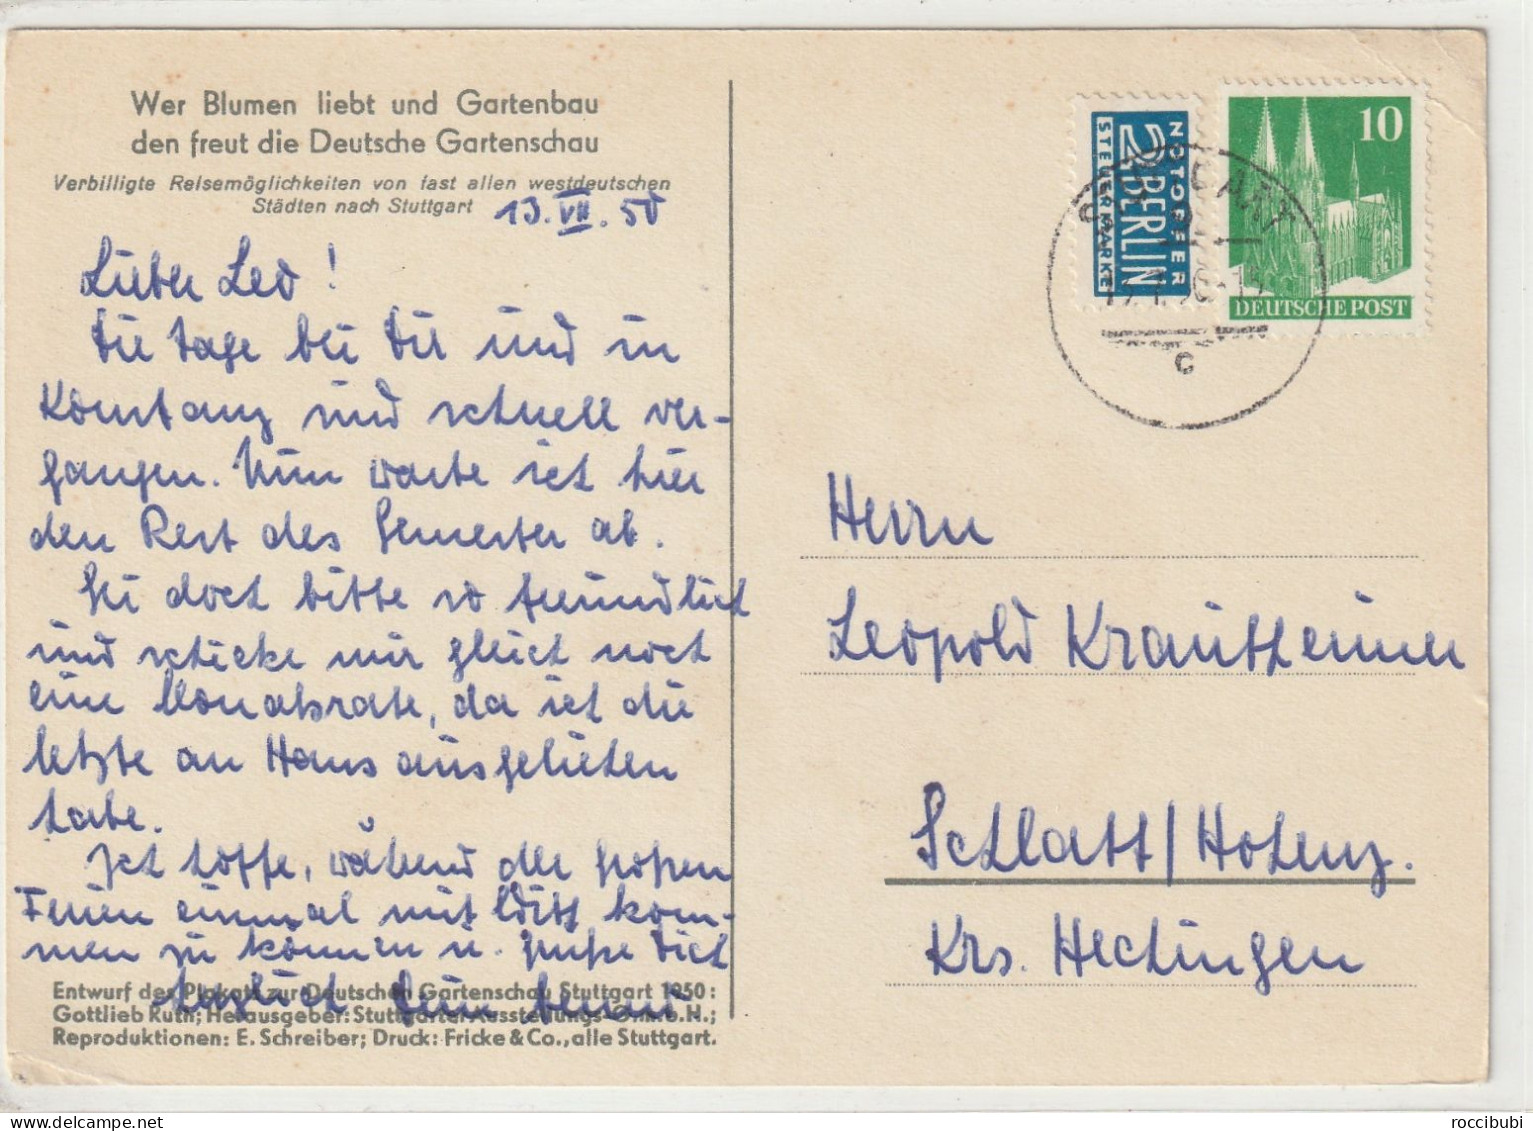 Wer Blumen liebt und Gartenbau
den freut die Deutsche Gartenschau
Verbilligte Reisemöglichkeiten von fast allen westdeutschen
Städten nach Stuttgart
13. VII. 50
Lieber Leo!
Die Tage bei Dir und in
Konstanz sind schnell ver-
gangen. Nun warte ich hier
den Rest des Semester ab.
Sei doch bitte so freundlich
und schicke mir gleich noch
eine Monatskarte, da ich die
letzte an Hans ausgeliehen
habe.
Ich hoffe, während der großen
Ferien einmal mit kom-
men zu können u. grüße Dich
herzlich Dein
Entwurf des Plakats zur Deutschen Gartenschau Stuttgart 1950:
Gottlieb Ruth; Herausgeber: Stuttgarter Ausstellungs-G.m.b.H.;
Reproduktionen: E. Schreiber; Druck: Fricke & Co., alle Stuttgart.
NOTOPFER
2 BERLIN
STEUERMARKE
10
DEUTSCHE POST
c
Herrn
Leopold Krautheimer
Schlatt/Hohenz.
Krs. Hechingen
roccibubi